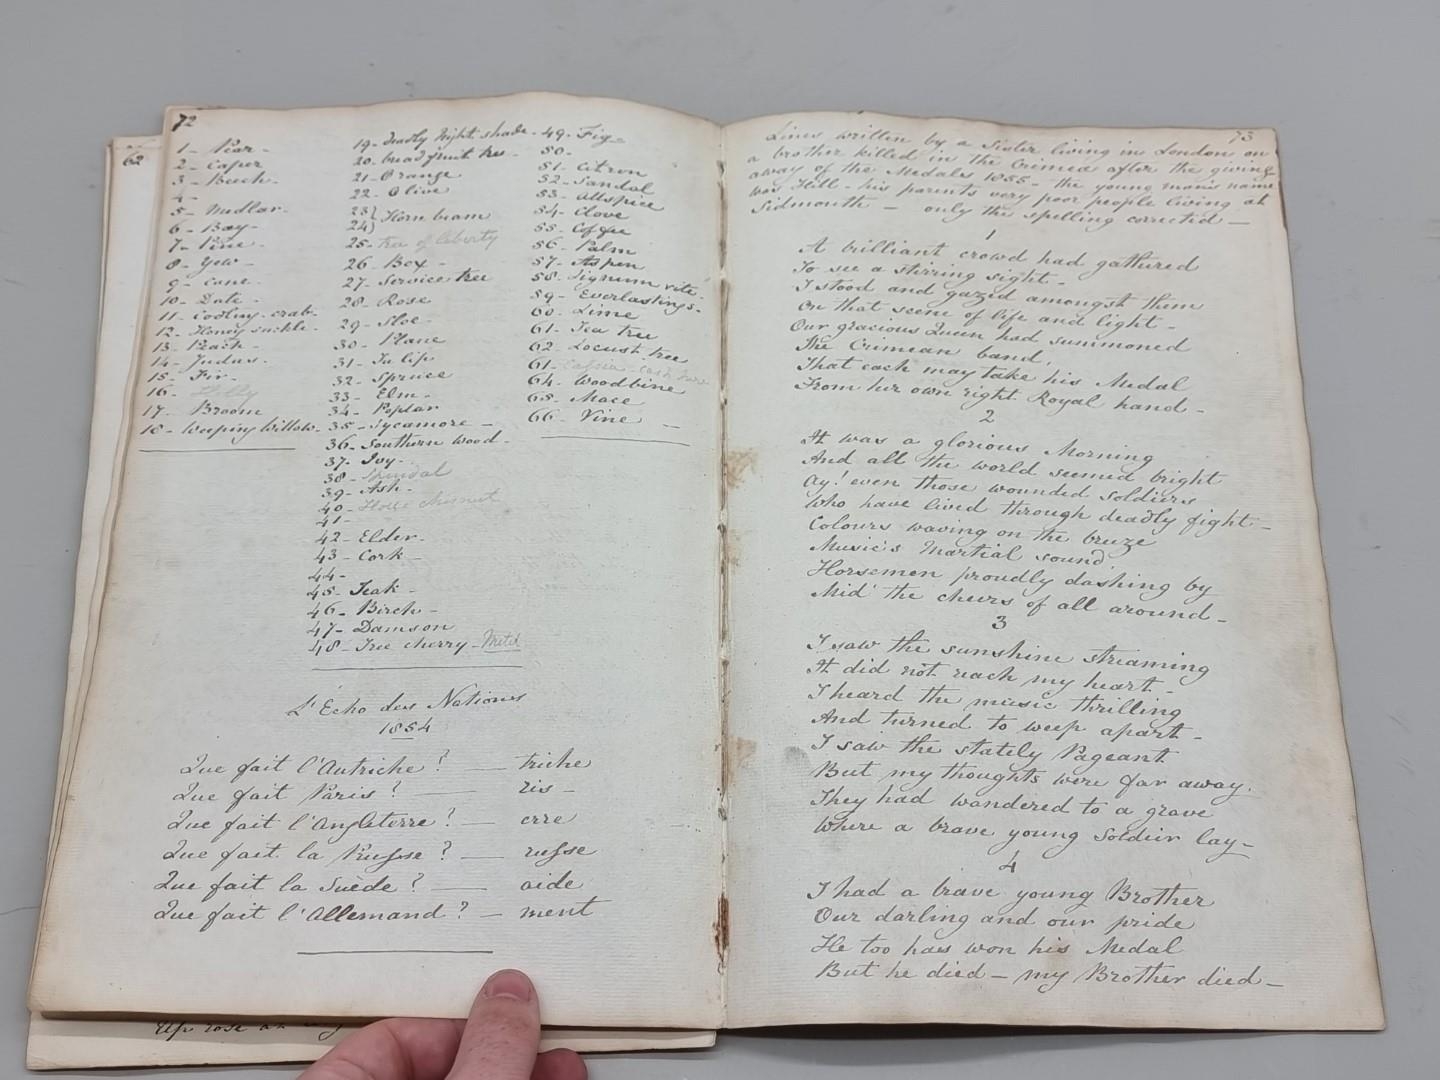 72
62
1 - Pear -
2 - Caper
3 - Beech -
4 -
5 - Medlar -
6 - Bay -
7 - Pine -
8 - Yew -
9 - Cane -
10 - Date -
11 - crab -
12 - Honey suckle -
13 - Peach -
14 - Judas -
15 - Fir -
16 - Holly
17 - Broom
18 - Weeping Willow -
19 - Deadly Night shade -
20 - bread fruit tree -
21 - Orange
22 - Olive
23 }
24 } Horn beam
25 - tree of liberty
26 - Box -
27 - Service tree
28 - Rose
29 - Sloe -
30 - Plane
31 - Tulip
32 - Spruce
33 - Elm -
34 - Poplar
35 - Sycamore -
36 - Southern wood -
37 - Ivy -
38 -
39 - Ash -
40 - Horse Chesnut
41 -
42 - Elder -
43 - Cork -
44 -
45 - Teak -
46 - Birch -
47 - Damson
48 - Tree cherry -
49 - Fig -
50 -
51 - Citron
52 - Sandal
53 - Allspice
54 - Clove
55 - Coffee
56 - Palm
57 - Aspen
58 - Lignum vitæ -
59 - Everlastings -
60 - Lime
61 - Tea tree
62 - Locust tree
61 - Cassia -
64 - Woodbine
65 - Mace
66 - Vine -
L'Echo des Nations
1854
Que fait l'Autriche? — triche
Que fait Paris? — ris -
Que fait l'Angleterre? — erre
Que fait la Russe? — russe
Que fait la Suède? — aide
Que fait l'Allemand? — ment
Up rose
73
Lines written by a Sister living in London on
a brother killed in the Crimea after the giving
away of the Medals 1855 - the young man's name
was Hill - his parents very poor people living at
Sidmouth - only the spelling corrected -
1
A brilliant crowd had gathered
To see a stirring sight -
I stood and gazed amongst them
On that scene of life and light -
Our gracious Queen had summoned
The Crimean band,
That each may take his Medal
From her own right Royal hand -
2
It was a glorious Morning
And all the world seemed bright
Ay! even those wounded soldiers
Who have lived through deadly fight -
Colours waving on the breeze
Music's Martial sound
Horsemen proudly dashing by
Mid' the cheers of all around -
3
I saw the sunshine streaming
It did not reach my heart -
I heard the music thrilling
And turned to weep apart -
I saw the stately Pageant
But my thoughts were far away.
They had wandered to a grave
Where a brave young Soldier lay -
4
I had a brave young Brother
Our darling and our pride
He too has won his Medal
But he died - my Brother died -